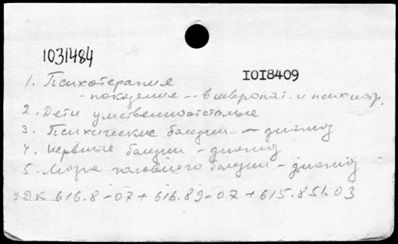 1031484
I0I8409
1. Психотерапия
- показания -- в невропат. и психиатр.
2. Дети умственноотсталые
3. Психические болезни - диагноз
4. Нервные болезни - диагноз
5. Мозга головного болезни - диагноз
УДК 616.8-07+616.89-07+615.851.03